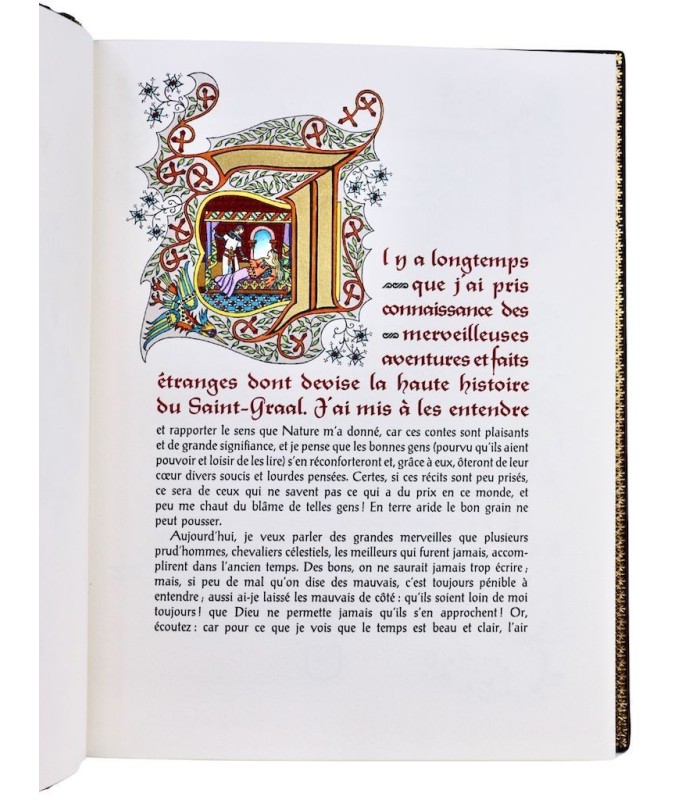 Il y a longtemps
que j'ai pris
connaissance des
merveilleuses
aventures et faits
étranges dont devise la haute histoire
du Saint-Graal. J'ai mis à les entendre
et rapporter le sens que Nature m'a donné, car ces contes sont plaisants
et de grande signifiance, et je pense que les bonnes gens (pourvu qu'ils aient
pouvoir et loisir de les lire) s'en réconforteront et, grâce à eux, ôteront de leur
cœur divers soucis et lourdes pensées. Certes, si ces récits sont peu prisés,
ce sera de ceux qui ne savent pas ce qui a du prix en ce monde, et
peu me chaut du blâme de telles gens ! En terre aride le bon grain ne
peut pousser.
Aujourd'hui, je veux parler des grandes merveilles que plusieurs
prud'hommes, chevaliers célestiels, les meilleurs qui furent jamais, accom-
plirent dans l'ancien temps. Des bons, on ne saurait jamais trop écrire ;
mais, si peu de mal qu'on dise des mauvais, c'est toujours pénible à
entendre ; aussi ai-je laissé les mauvais de côté : qu'ils soient loin de moi
toujours ! que Dieu ne permette jamais qu'ils s'en approchent ! Or,
écoutez : car pour ce que je vois que le temps est beau et clair, l'air